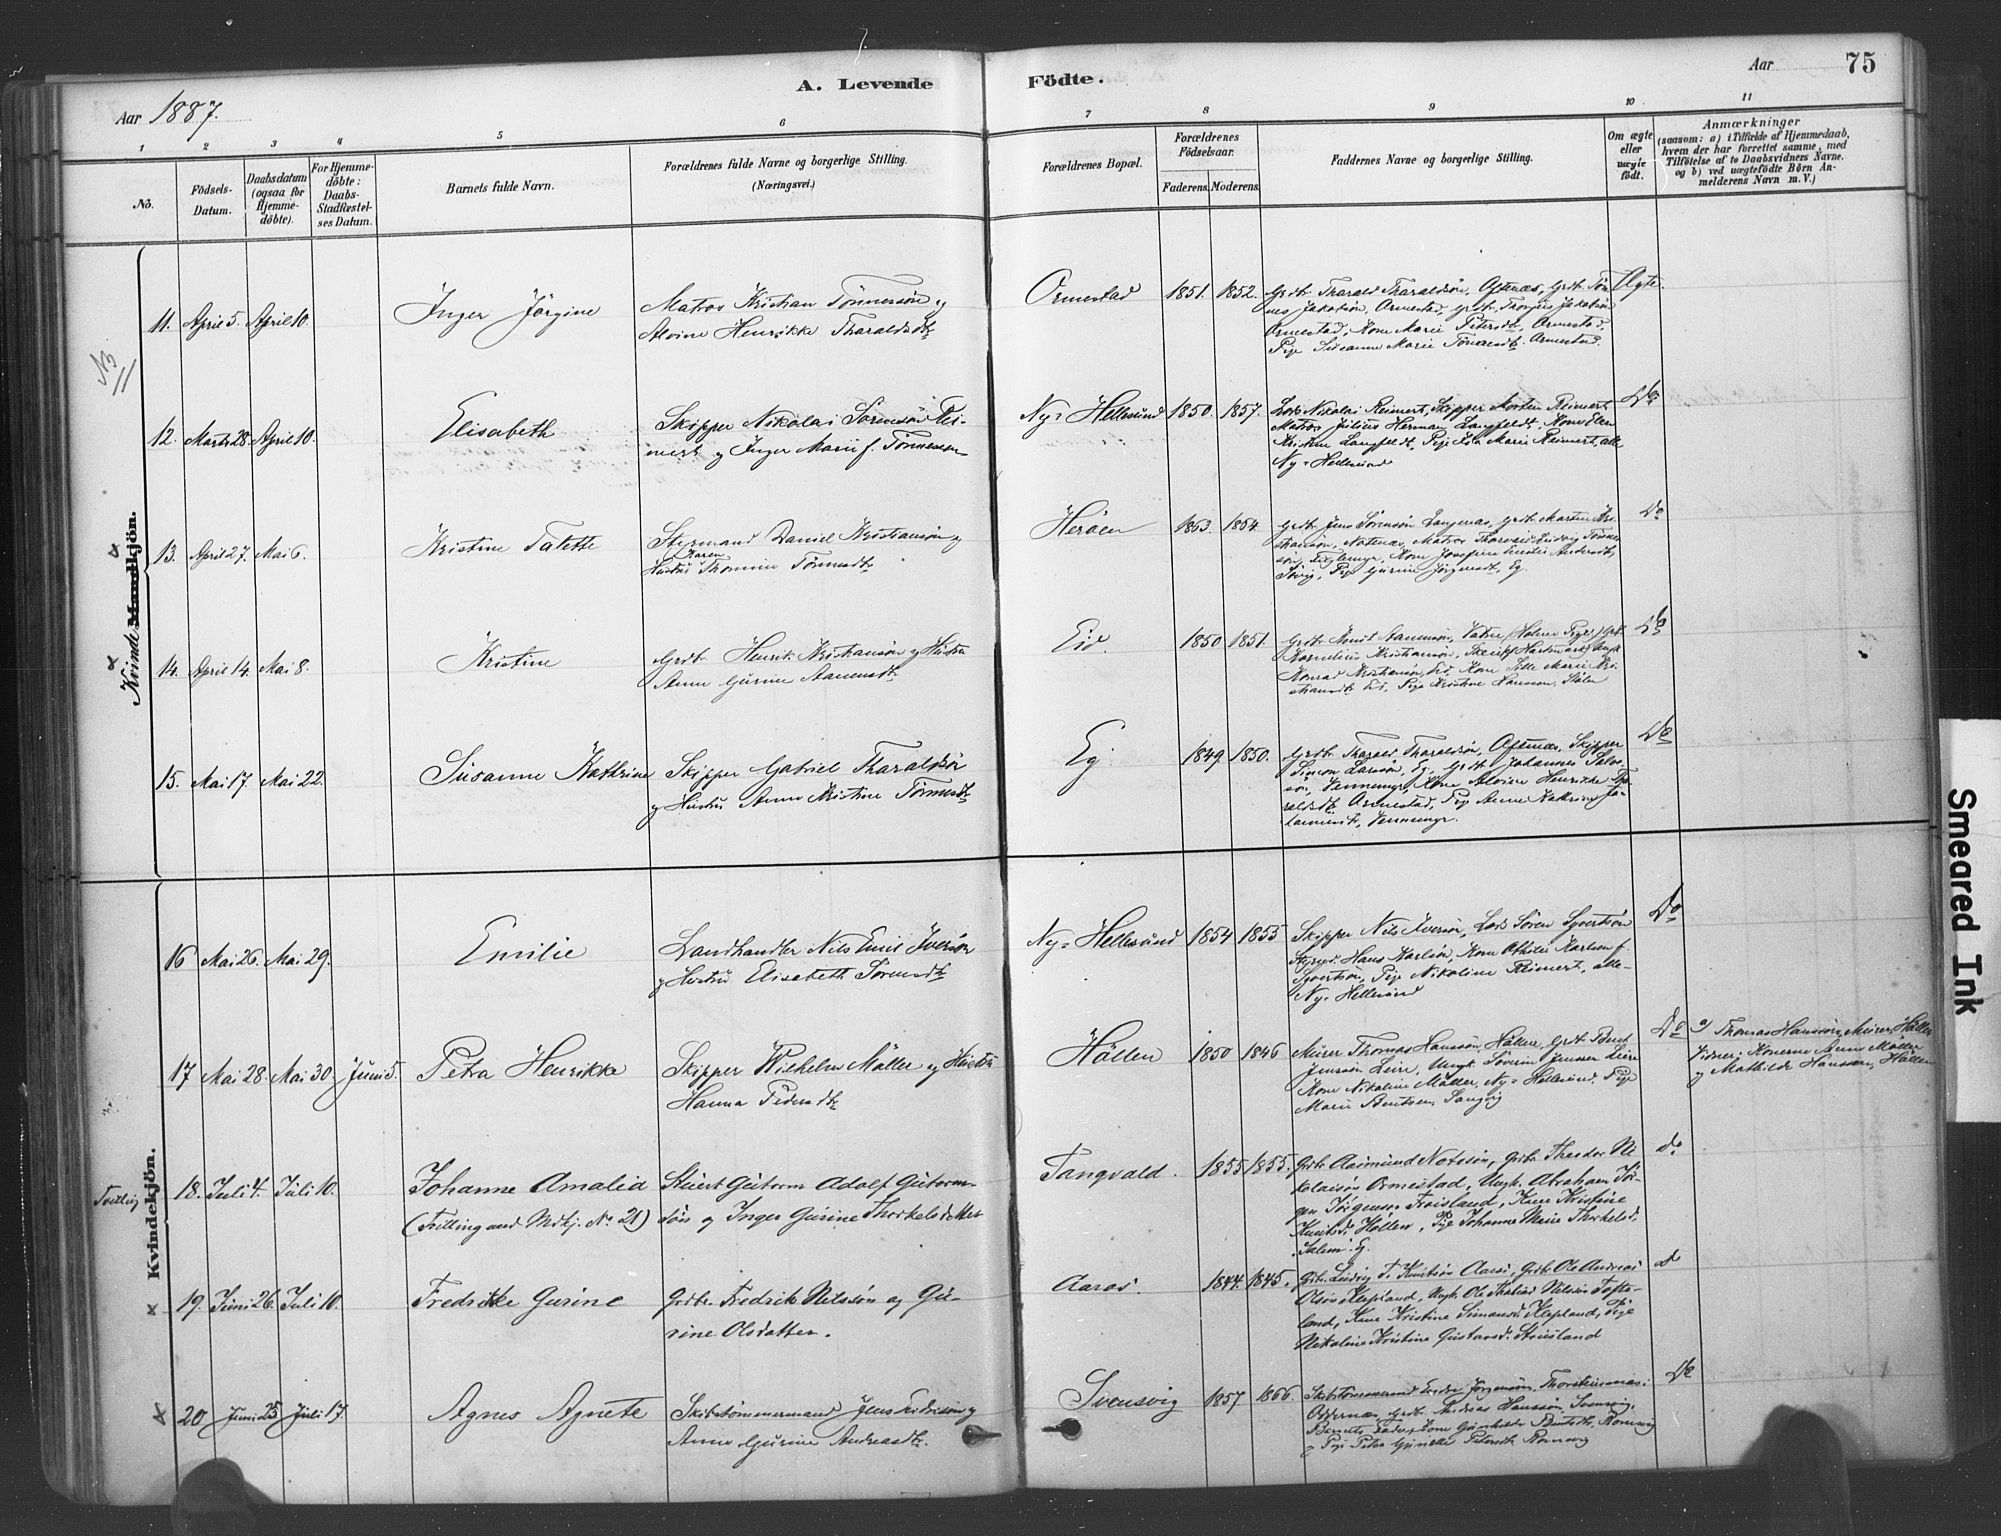 A. Levende
Födte.
Aar
75
Aar 1887.
1 2 3 4 5 6 7 8 9 10 11
No.
Födsels-
Datum.
Daabsdatum
(ogsaa for
Hjemme-
döbte).
For Hjemme-
döbte:
Daabs-
Stadfæstel-
ses Datum.
Barnets fulde Navn.
Forældrenes fulde Navne og borgerlige Stilling.
(Næringsvei.)
Forældrenes Bopæl.
Forældrenes
Födselsaar.
Faderens. Moderens.
Faddernes Navne og borgerlige Stilling.
Om ægte
eller
uægte
födt.
Anmærkninger
(saasom: a) i Tilfælde af Hjemmedaab,
hvem der har forrettet samme, med
Tilföielse af to Daabsvidners Navne.
og b) ved uægtefödte Börn An-
melderens Navn m. V.)
Kvinde Mandkjön.
11. April 5. April 10. Inger Jörgine
Matros Kristian Tönnessön og
Alvine Henrikke Tharaldsdt
Ormestad 1851. 1852.
Grdbr. Tharald Tharaldsön, Oftenæs, Grdb. Tön-
nes Jakobsön, Ormestad, Grdb. Jakobsön
Ormestad, Kone Marie Petersdt, Ormestad,
Pige Susanne Marie Tönnesdt. Ormestad.
Ægte.
12. Marts 28. April 10. Elisabeth
Skipper Nikolai Sörensön Rei-
mert og Inger Marie f. Tönnesen
Ny-Hellesund 1850. 1857.
Lods Nikolai Reimert, Skipper Morten Reimert
Matros Julius Herman Langfeldt, Kone Elen
Kristine Langfeldt, Pige Marie Reimert, alle
Ny-Hellesund
Do
13. April 27. Mai 6. Kristine Talette
Styrmand Daniel Kristiansön og
Karen
Hustru Thomine Tönnesdt
Heröen 1853. 1854.
Grdb. Jens Sörensön Langenæs, Grdb. Morten Kri-
stiansön, Matros Ludvig Tönnes-
sön, Kone Josefine Andersdt,
Pige Gurine Jörgensdt, Eg.
Do
14. April 14. Mai 8. Kristine
Grdb. Henrik Kristiansön og Hustru
Anne Gurine Aanensdt
Eid. 1850 1851.
Grdb. Knut Aanensön,
Kornelius Kristiansön,
Konrad Kristiansön, Eid, Kone Marie Kri-
stiansdt Eid, Pige Kristine Hansen,
Do
15. Mai 17. Mai 22. Susanne Kathrine
Skipper Gabriel Tharaldsön
og Hustru Anne Kristine Tönnesdt
Eg. 1849. 1850.
Grdb. Tharald Tharaldsön, Oftenæs, Skipper
Simon Larssön, Eg, Grdb. Johannes Salve-
sön, Vennemyr, Kone Alvine Henrikke Tha-
raldsdt Ormestad, Pige Anne Kathrine Jo-
hannesdt, Vennemyr.
Do
Kvindekjön.
16 Mai 26. Mai 29. Emilie
Landhandler Nils Emil Iversön
og Hustru Elisabeth Sörensdt
Ny-Hellesund 1854 1855
Skipper Nils Iversön, Lods Sören Syvertsön
Styrmd. Hans Karlsön, Kone Othilie Karlsen f.
Syvertsön, Pige Nikoline Reimert, alle
Ny-Hellesund
Do
17 Mai 28. Mai 30. Juni 5. Petra Henrikke
Skipper Wilhelm Möller og Hustru
Hanna Pedersdt
Höllen 1850 1846
Murer Thomas Hanssön, Höllen, Grdb. Bent
Jenssön Leire, Ungk. Severin Jensen Leire
Kone Nikoline Möller, Ny-Hellesund, Pige
Marie Bentsen, Langvig
Do
a) Thomas Hanssön, Murer, Höllen
Vidner: Konerne Anne Möller
og Mathilde Hanssen, Höllen
Tvilling
18. Juli 4. Juli 10. Johanne Amalia
(Tvilling med Mdkj. No 21)
Stuert Gutorm Adolf Gutorm-
sön og Inger Gurine Thorkelsdatter
Tangvald. 1855 1855.
Grdbr. Aasmund Notosön, Grdbr. Theodor Ni-
kolaisön Ormestad, Ungk. Abraham Jör-
gen Jörgensen Froisland, Kone Kristine
Knutsd. Höllen, Pige Johanne Marie Thorkelsd.
Salem. Eg.
do
19. Juni 26. Juli 10. Fredrikke Gurine
Grdbr. Fredrik Nilssön og Gu-
rine Olsdatter.
Aaros. 1844. 1845.
Grdbr. Ludvig T. Knutsön Aaros, Grdbr. Ole Andreas
Olsön Klepland, Ungk. Ole Thobias Nilssön Tofte-
land, Kone Kristine Simonsd. Klepland, Pige
Nikoline Kristine Gustavsd. Stuesland
do
20 Juni 25 Juli 17. Agnes Agnete
Skibstömmermand Jens og
Anne Gurine Andreasdt.
Svensvig 1857 1866.
Skibstömmermand Jörgensön,
Oddernæs, Grdb. Andreas Hanssön, Svensvig,
Barnets Fader, Kone Bentsdt,
og Pige Petra Petersdt
Do
Smeared Ink